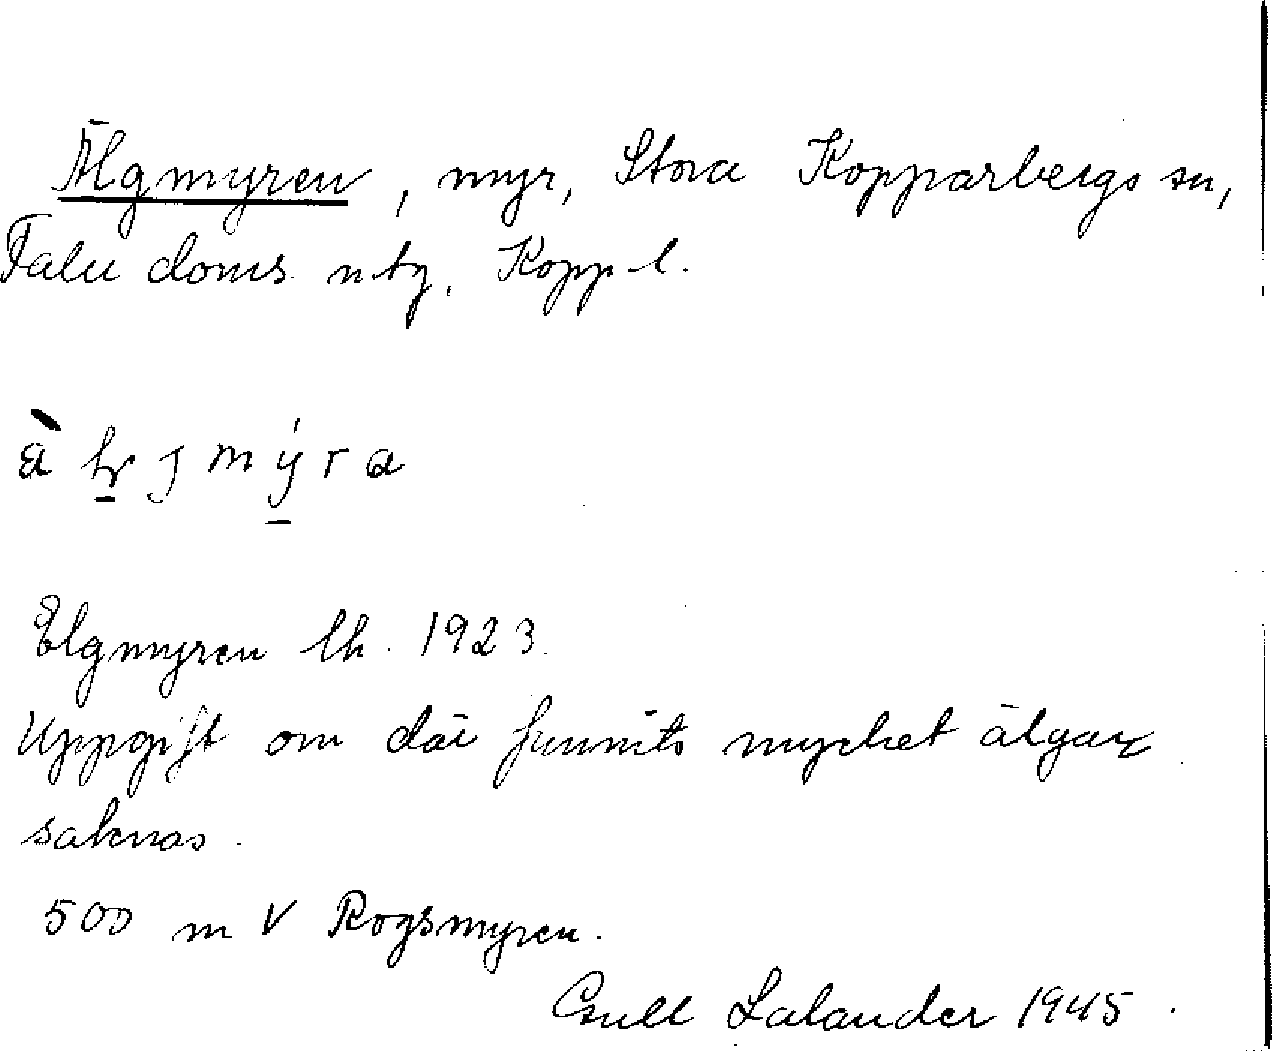 Älgmyren, myr, Stora Kopparbergs sn,
Falu doms. ntg, Kopp. l.
Elgmyren lh. 1923.
Uppgift om där funnits mycket älgar
saknas.
500 m V Rogsmyren.
Gull Lalander 1945.